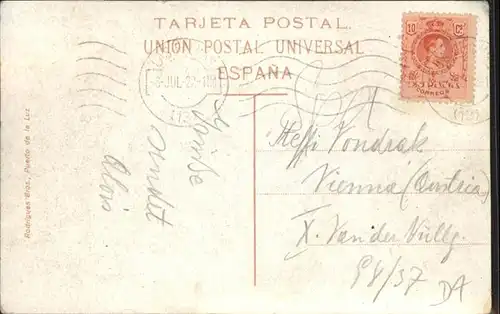 TARJETA POSTAL.
UNION POSTAL UNIVERSAL
ESPAÑA
10 Cs
CORREOS
JUL
Rodrigues Bros., Puerto de la Luz
Alois
Steffi Vondrak
Vienna (Austria)
X. Van der Nüllg.
98/37
DA